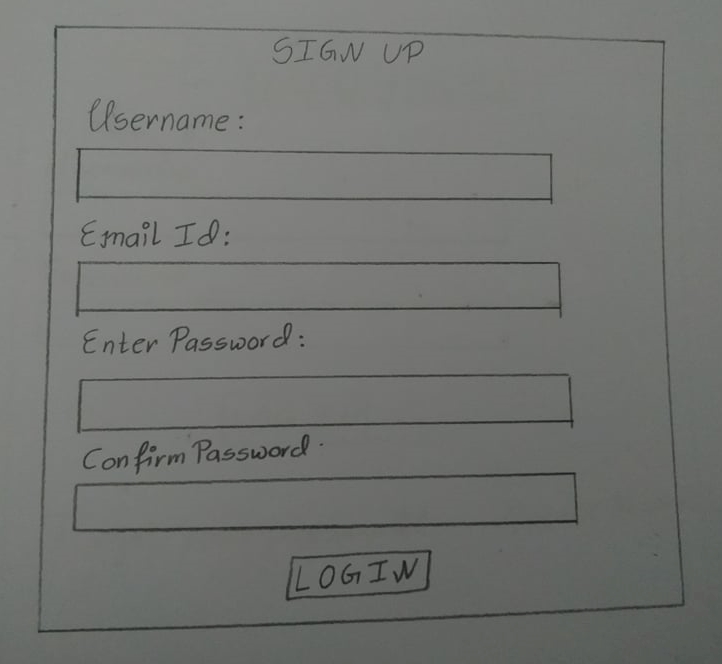 SIGN UP
Username:
Email Id:
Enter Password:
Confirm Password.
LOGIN